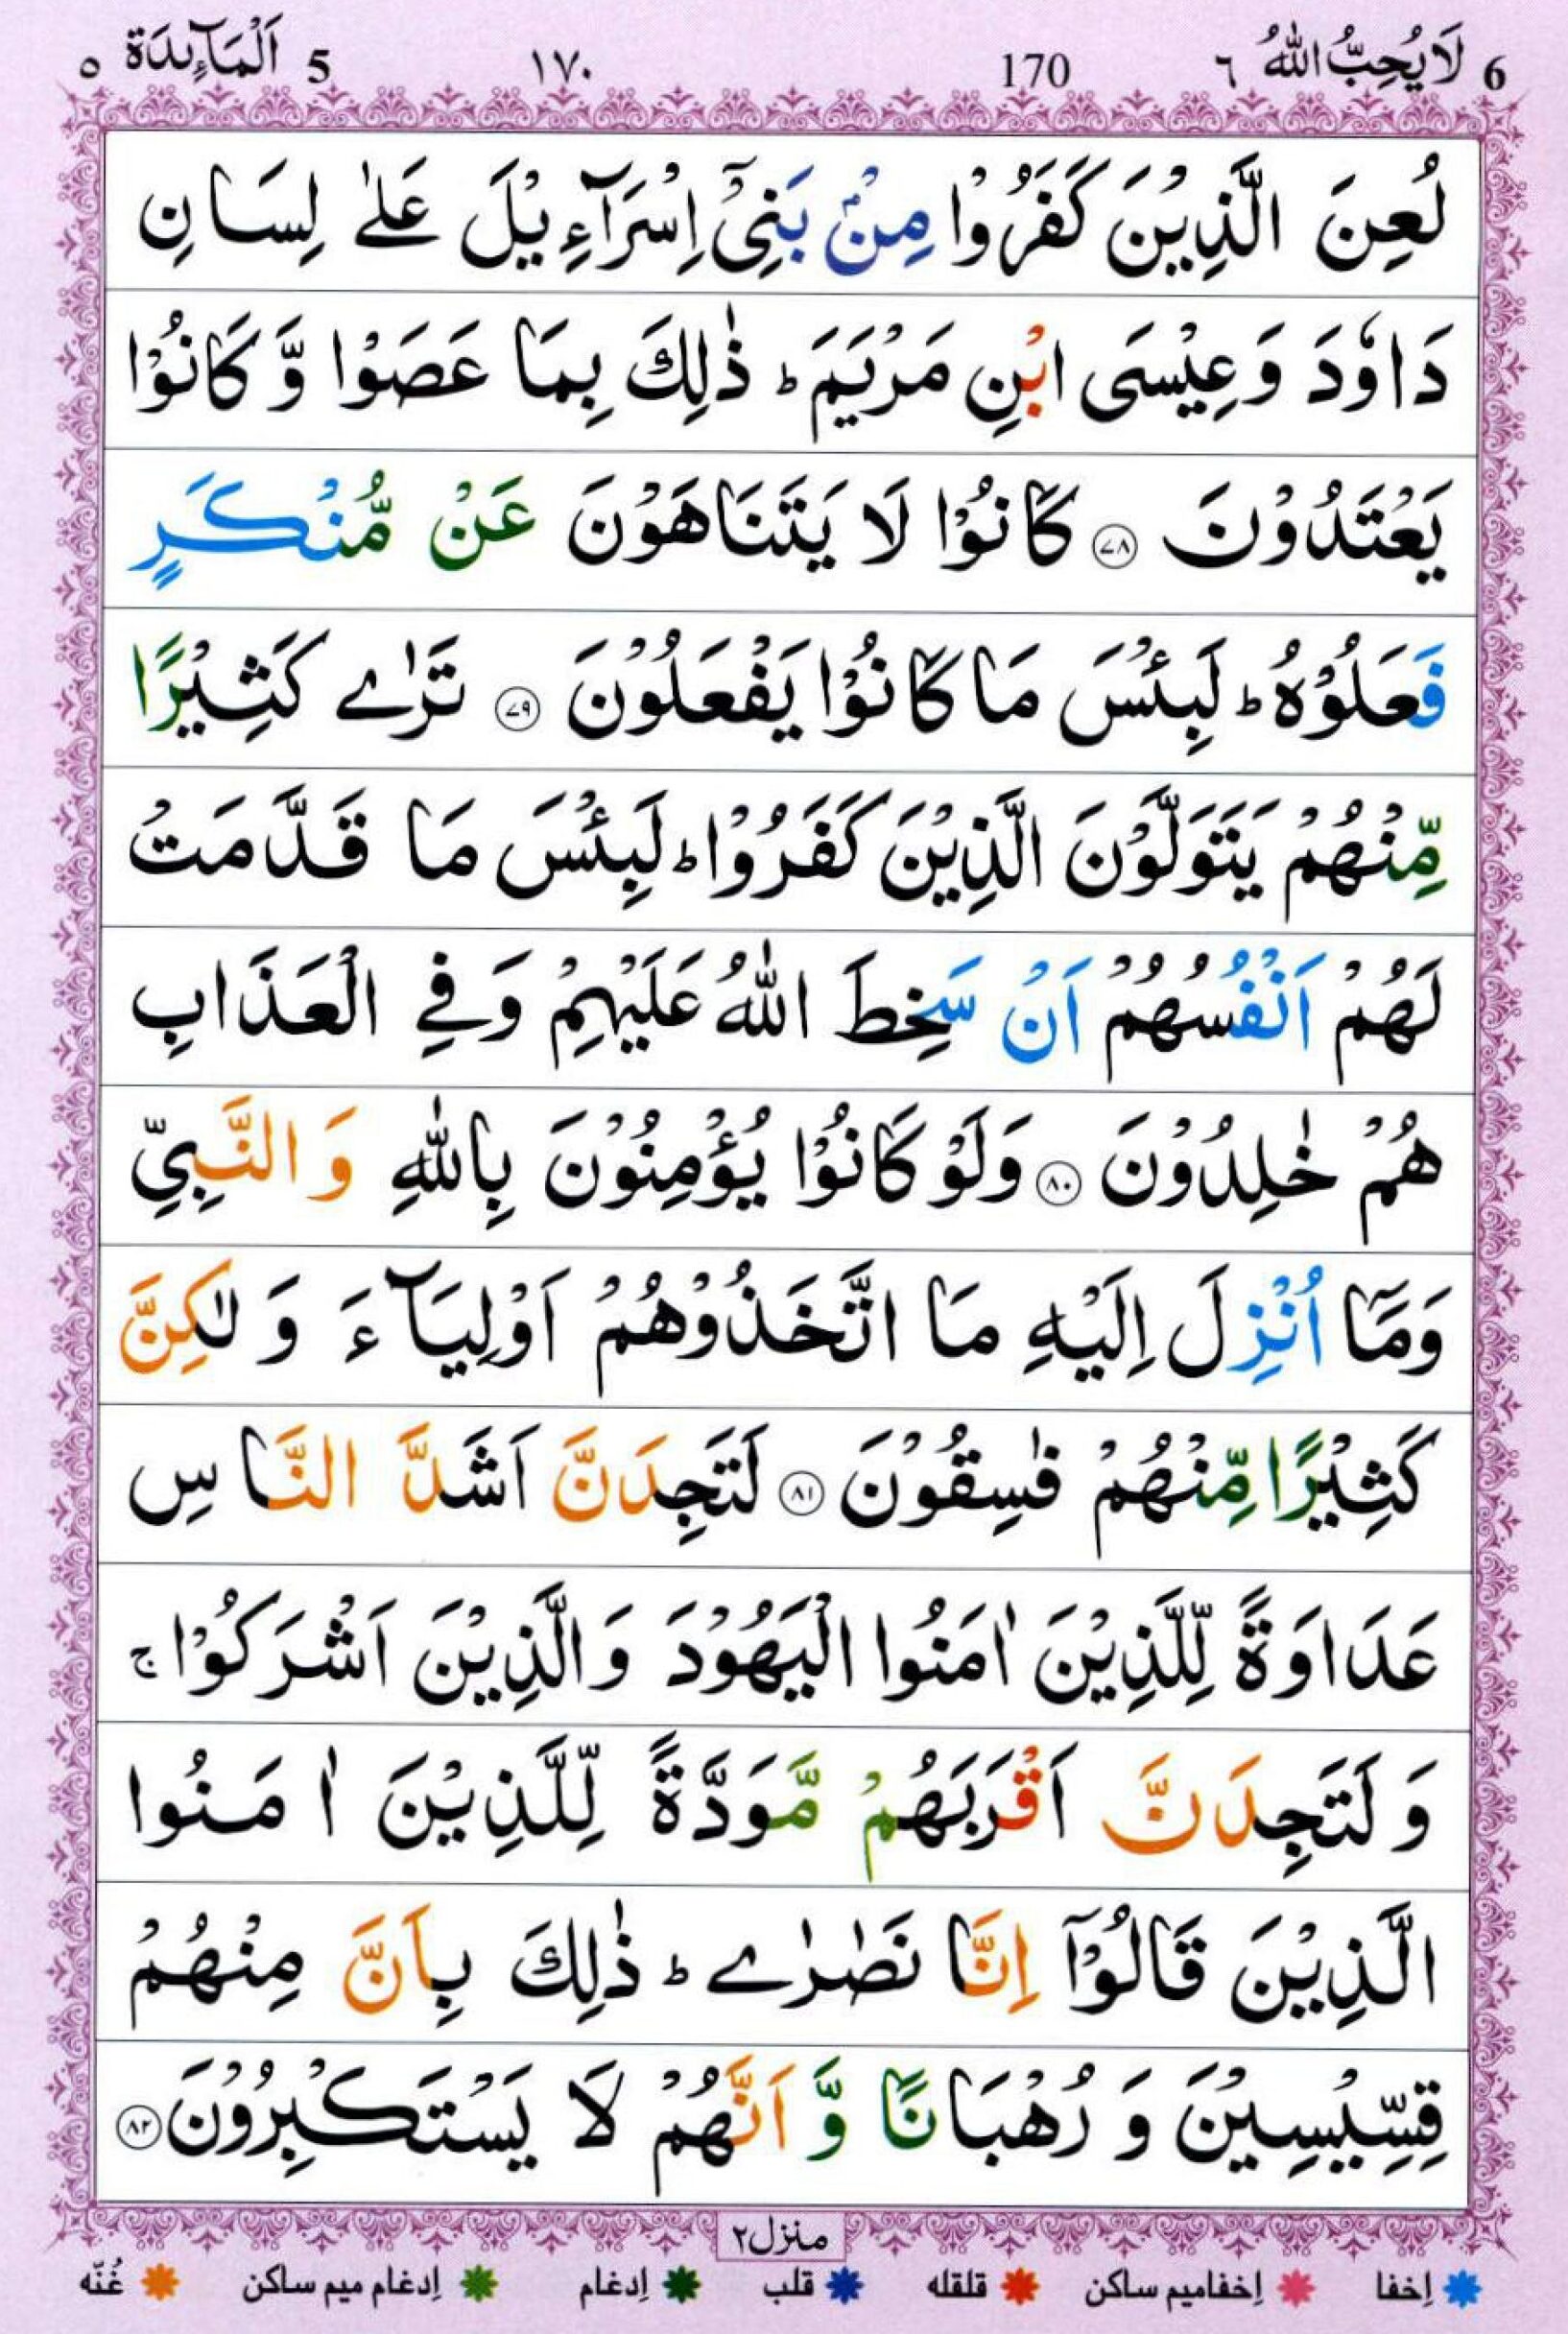 6 لَا يُحِبُّ اللّٰهُ ٦ 170 ١٧٠ 5 اَلْمَآئِدَة ٥
لُعِنَ الَّذِيْنَ كَفَرُوْا مِنْۢ بَنِيْۤ اِسْرَآءِيْلَ عَلٰى لِسَانِ
دَاوٗدَ وَعِيْسَى ابْنِ مَرْيَمَ ؕ ذٰلِكَ بِمَا عَصَوْا وَّكَانُوْا
يَعْتَدُوْنَ ۝٧٨ كَانُوْا لَا يَتَنَاهَوْنَ عَنْ مُّنْكَرٍ
فَعَلُوْهُ ؕ لَبِئْسَ مَا كَانُوْا يَفْعَلُوْنَ ۝٧٩ تَرٰى كَثِيْرًا
مِّنْهُمْ يَتَوَلَّوْنَ الَّذِيْنَ كَفَرُوْا ؕ لَبِئْسَ مَا قَدَّمَتْ
لَهُمْ اَنْفُسُهُمْ اَنْ سَخِطَ اللّٰهُ عَلَيْهِمْ وَفِى الْعَذَابِ
هُمْ خٰلِدُوْنَ ۝٨٠ وَلَوْ كَانُوْا يُؤْمِنُوْنَ بِاللّٰهِ وَالنَّبِيِّ
وَمَاۤ اُنْزِلَ اِلَيْهِ مَا اتَّخَذُوْهُمْ اَوْلِيَآءَ وَلٰكِنَّ
كَثِيْرًا مِّنْهُمْ فٰسِقُوْنَ ۝٨١ لَتَجِدَنَّ اَشَدَّ النَّاسِ
عَدَاوَةً لِّلَّذِيْنَ اٰمَنُوا الْيَهُوْدَ وَالَّذِيْنَ اَشْرَكُوْا ۚ
وَلَتَجِدَنَّ اَقْرَبَهُمْ مَّوَدَّةً لِّلَّذِيْنَ اٰمَنُوا
الَّذِيْنَ قَالُوْۤا اِنَّا نَصٰرٰى ؕ ذٰلِكَ بِاَنَّ مِنْهُمْ
قِسِّيْسِيْنَ وَرُهْبَانًا وَّاَنَّهُمْ لَا يَسْتَكْبِرُوْنَ ۝٨٢
منزل٢
اِخفا اِخفامیم ساکن قلقله قلب اِدغام اِدغام میم ساکن غُنّه